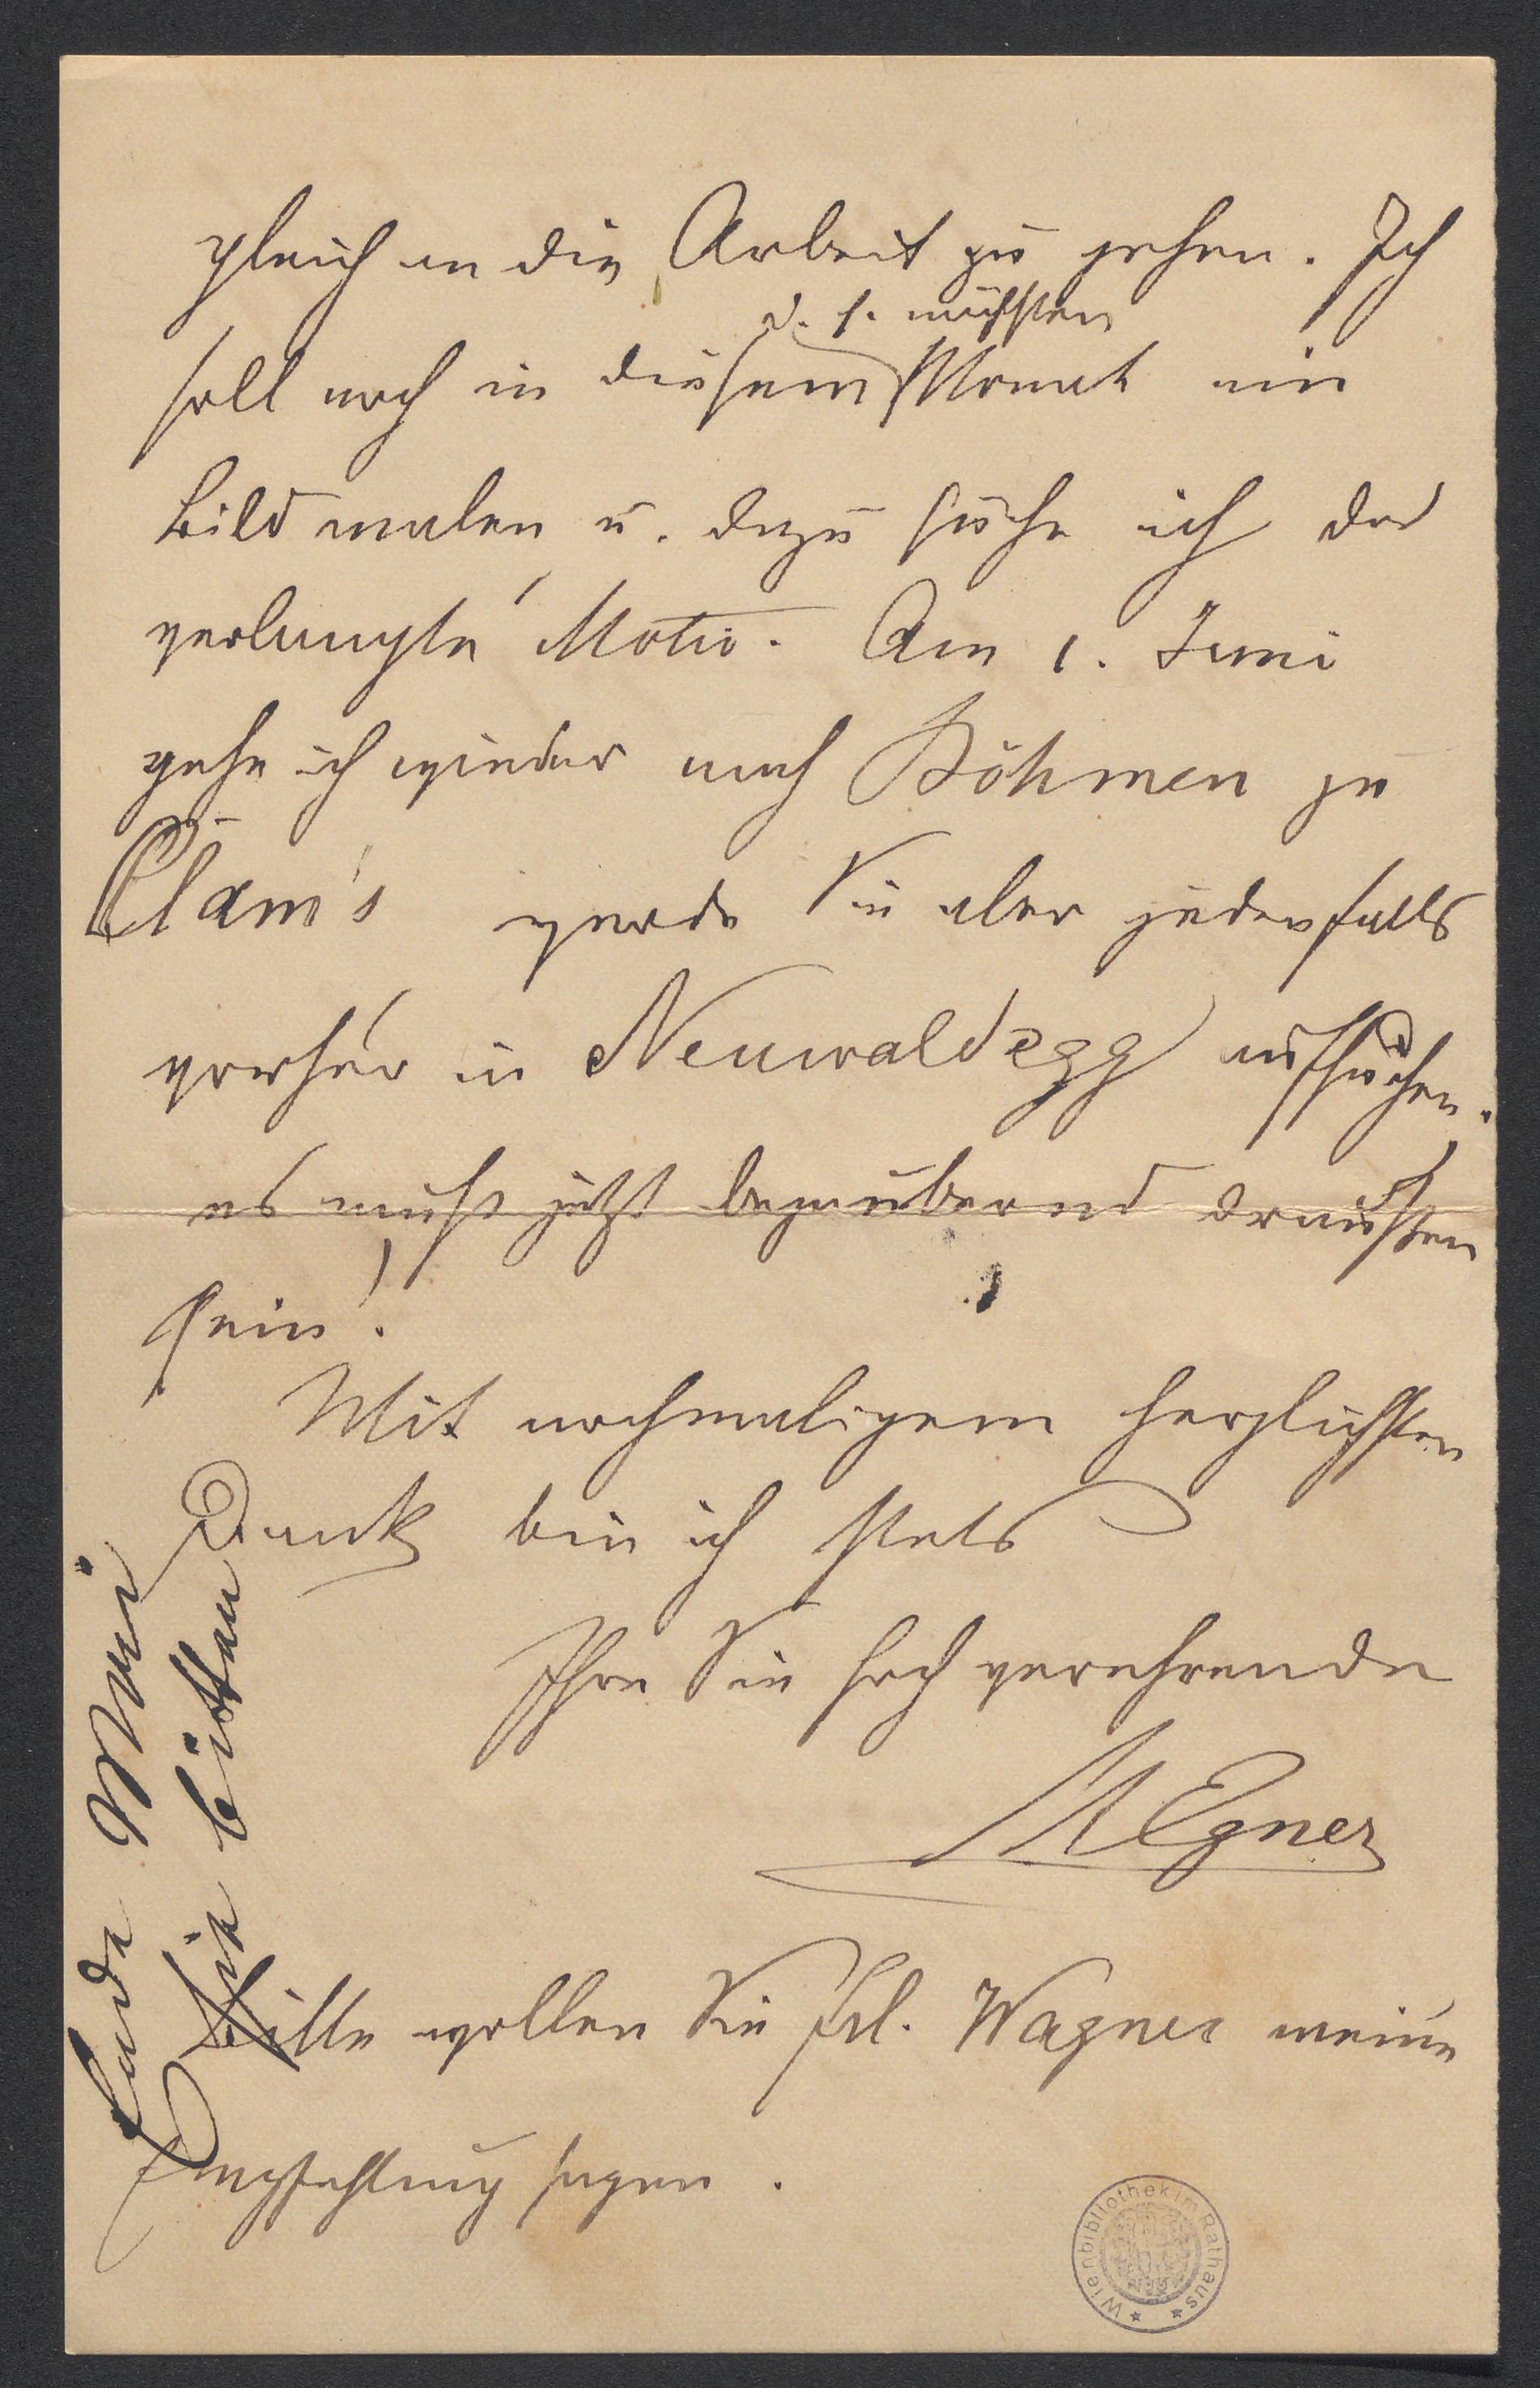 gleich an die Arbeit zu gehen. Ich
d. h. nächsten
soll noch in diesem Monat ein
Bild malen u. dazu suche ich das
verlangte Motiv. Am 1. Juni
gehe ich wieder nach Böhmen zu
Clam's werde Sie aber jedenfalls
vorher in Neuwaldegg aufsuchen.
es muß jetzt bezaubernd draußen
sein!
Mit nochmaligem herzlichsten
Dank bin ich stets
Ihre Sie hochverehrende
M Egner
Bitte wollen Sie Frl. Wagner meine
Empfehlung sagen.
Ende Mai
Sie bitten
Wienbibliothek im Rathaus